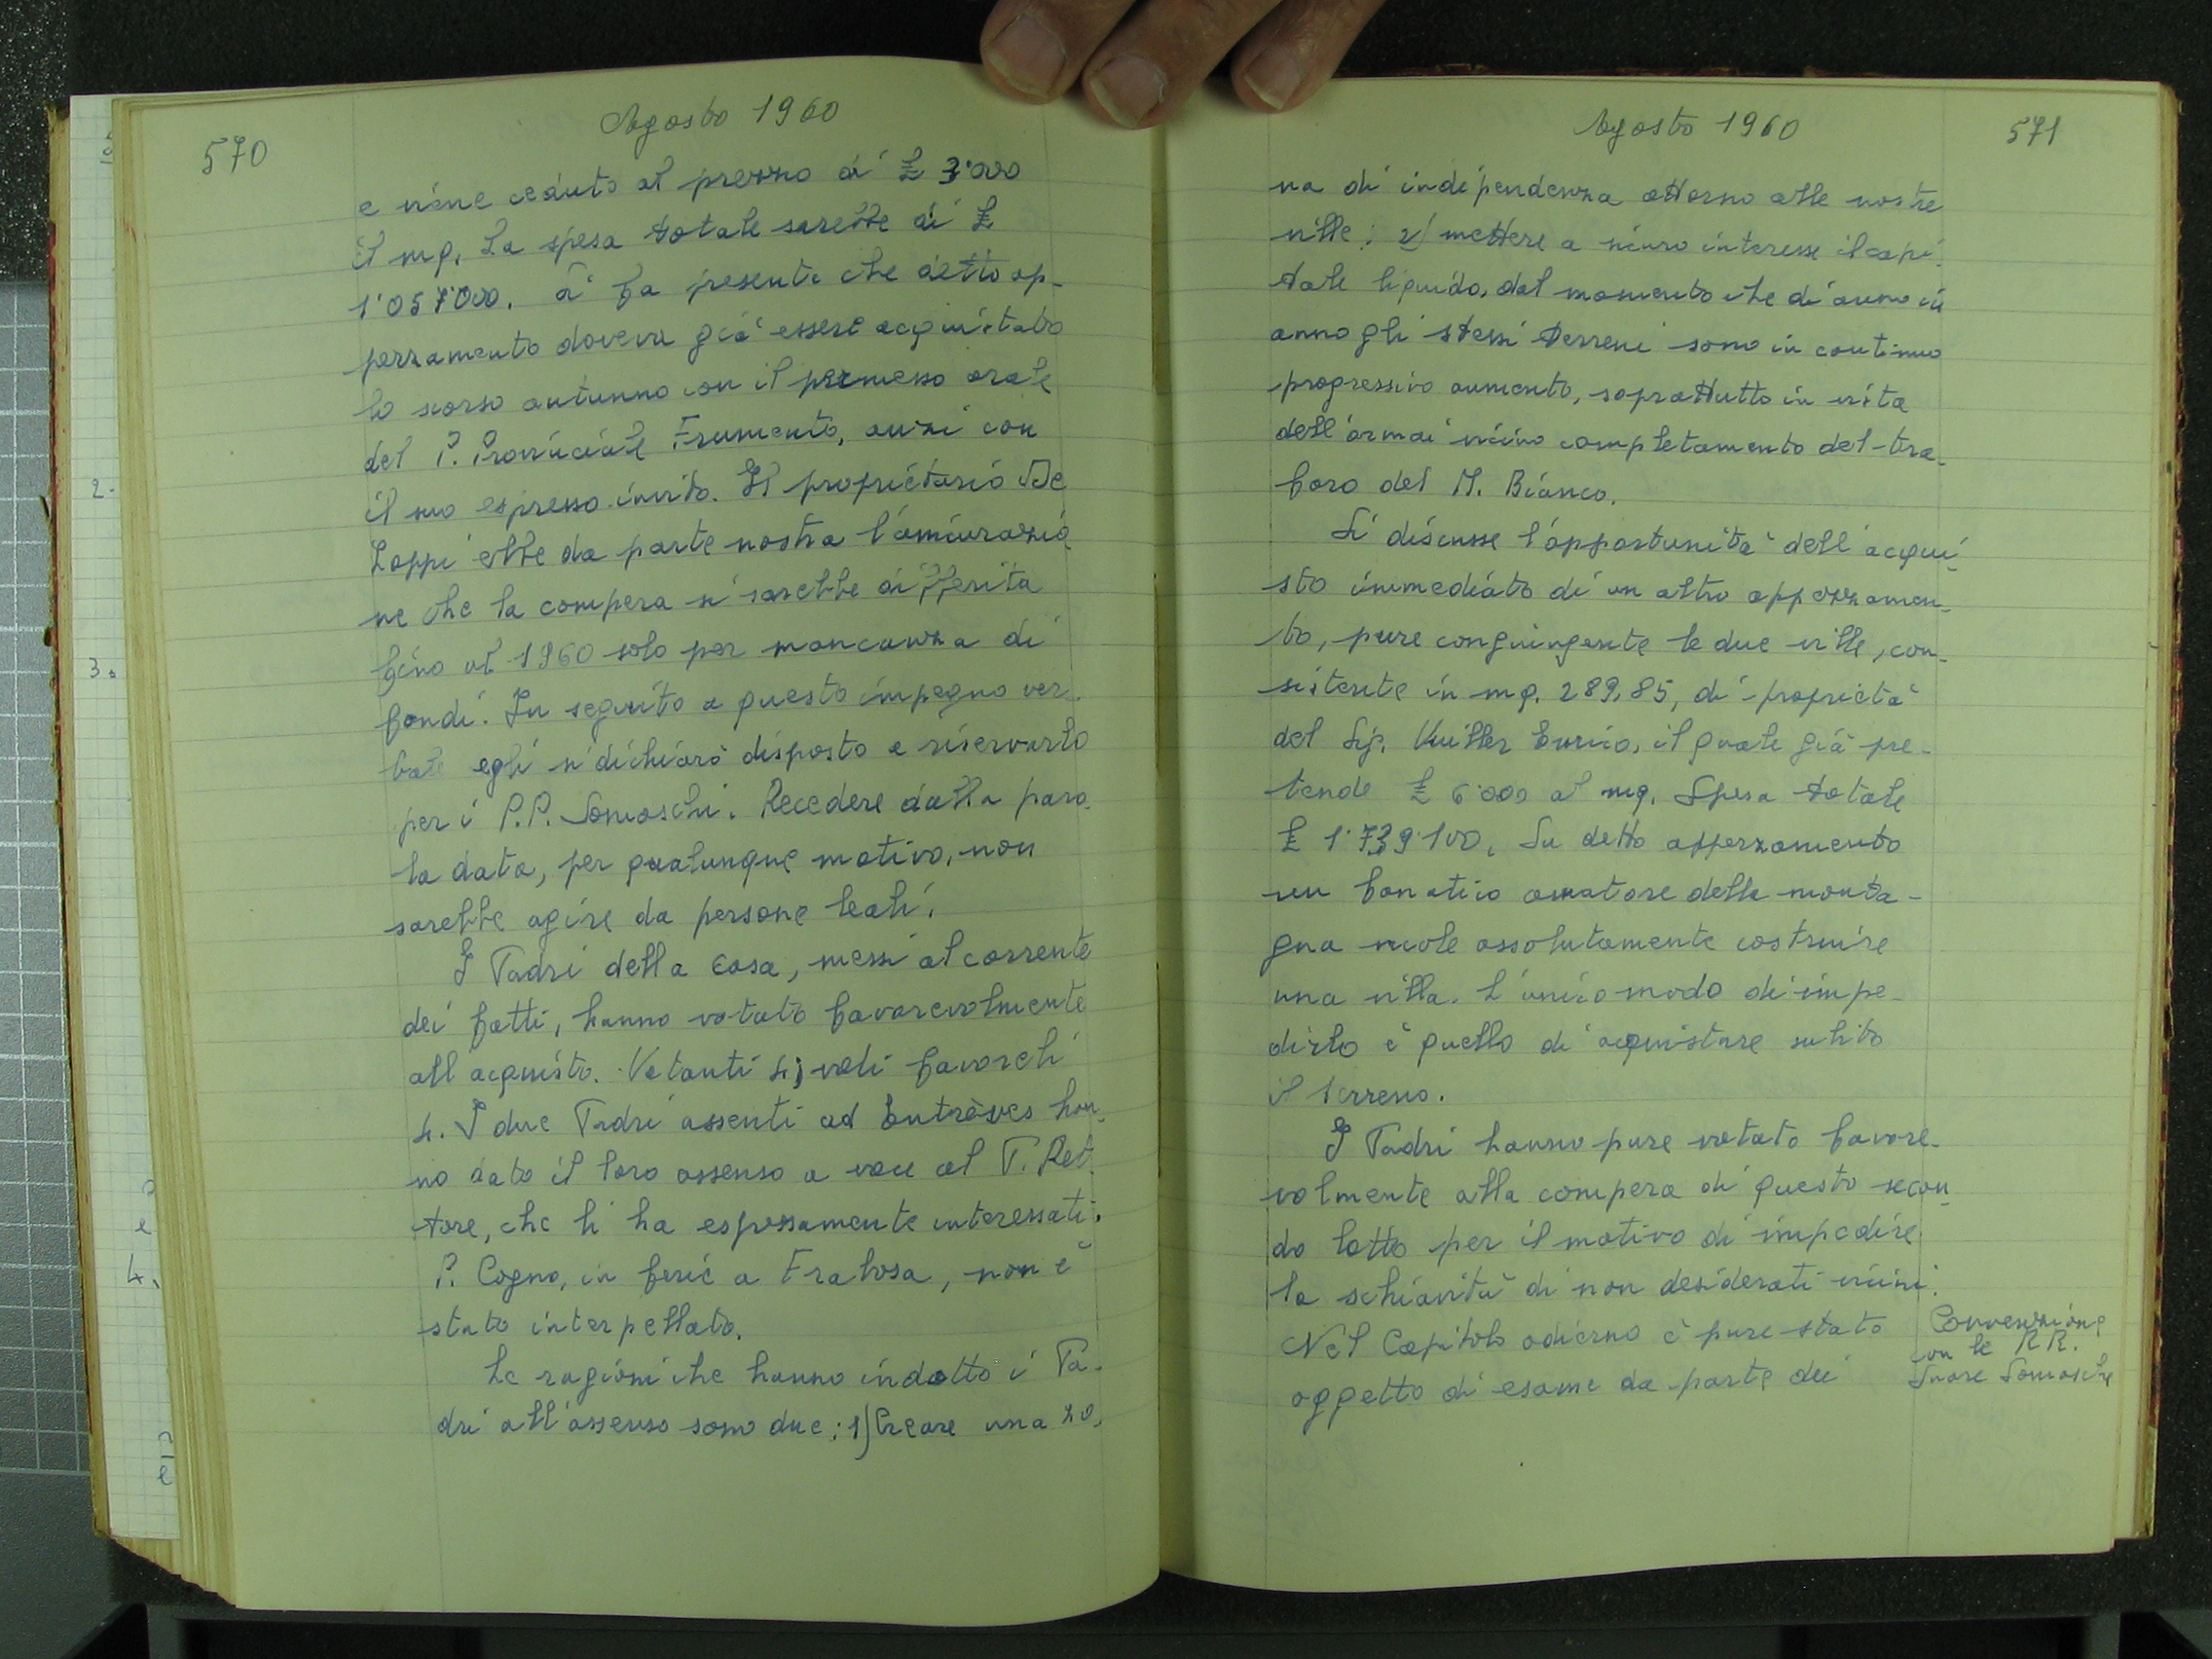 570
Agosto 1960
e viene ceduto al prezzo di £ 3'000
il mq. La spesa totale sarebbe di £
1'057'000. Si fa presente che detto ap-
pezzamento doveva già essere acquistato
lo scorso autunno con il permesso orale
del P. Provinciale Frumento, anzi con
il suo espresso invito. Il proprietario De
Loppi ebbe da parte nostra l'assicurazio
ne che la compera si sarebbe differita
fino al 1960 solo per mancanza di
fondi. In seguito a questo impegno ver-
bale egli si dichiarò disposto a riservarlo
per i P.P. Somaschi. Recedere dalla paro-
la data, per qualunque motivo, non
sarebbe agire da persone leali.
I Padri della casa, messi al corrente
dei fatti, hanno votato favorevolmente
all'acquisto. Votanti 4; voti favoreli
4. I due Padri assenti ad Entrèves han-
no dato il loro assenso a voce al P. Ret-
tore, che li ha espressamente interessati.
P. Cogno, in ferie a Frabosa, non è
stato interpellato.
Le ragioni che hanno indotto i Pa-
dri all'assenso sono due: 1) Creare una zo-
Agosto 1960
571
na di indipendenza attorno alle nostre
ville; 2) mettere a sicuro interesse il capi-
tale liquido, dal momento che di anno in
anno gli stessi terreni sono in continuo
progressivo aumento, soprattutto in vista
dell'ormai vicino completamento del tra-
foro del M. Bianco.
Si discusse l'opportunità dell'acqui-
sto immediato di un altro appezzamen-
to, pure congiungente le due ville, con-
sistente in mq. 289,85, di proprietà
del Sig. Vuiller Enrico, il quale già pre-
tende £ 6'000 al mq. Spesa totale
£ 1'739'100. Su detto appezzamento
un fanatico amatore della monta-
gna vuole assolutamente costruire
una villa. L'unico modo di impe-
dirlo è quello di acquistare subito
il terreno.
I Padri hanno pure votato favore-
volmente alla compera di questo secon-
do lotto per il motivo di impedire
la schiavitù di non desiderati vicini.
Nel Capitolo odierno è pure stato
oggetto di esame da parte dei
Convenzione
con le RR.
Suore Somasche
2.
3.
4.